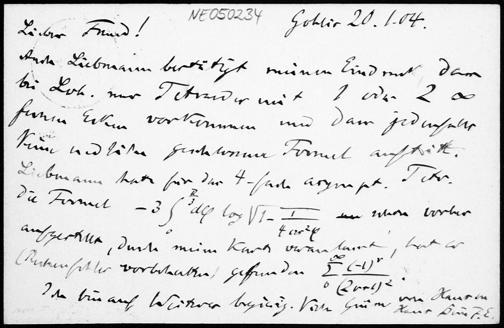 NE050234
Gohlis 20.I.04.
Lieber Freund!
Auch Liebmann bestätigt meinen Eindruck, dass
bei Lob. nur Tetraeder mit 1 oder 2 ∞
fernen Ecken vorkommen und dass jedenfalls
Keine endliche geschlossene Formel auftritt.
Liebmann hatte für das 4-fach asympt. Tetr.
die Formel −3 ∫₀^{π/3} dφ log √(1 − 1/(4 cos²φ)) schon vorher
aufgestellt, durch meine Karte veranlasst, hat er
(Rechenfehler vorbehalten) gefunden Σ₀^∞ (−1)^ν/(2ν+1)².
Ich bin auf Weiteres begierig. Viele Grüsse von Haus zu
Haus Dein F.E.